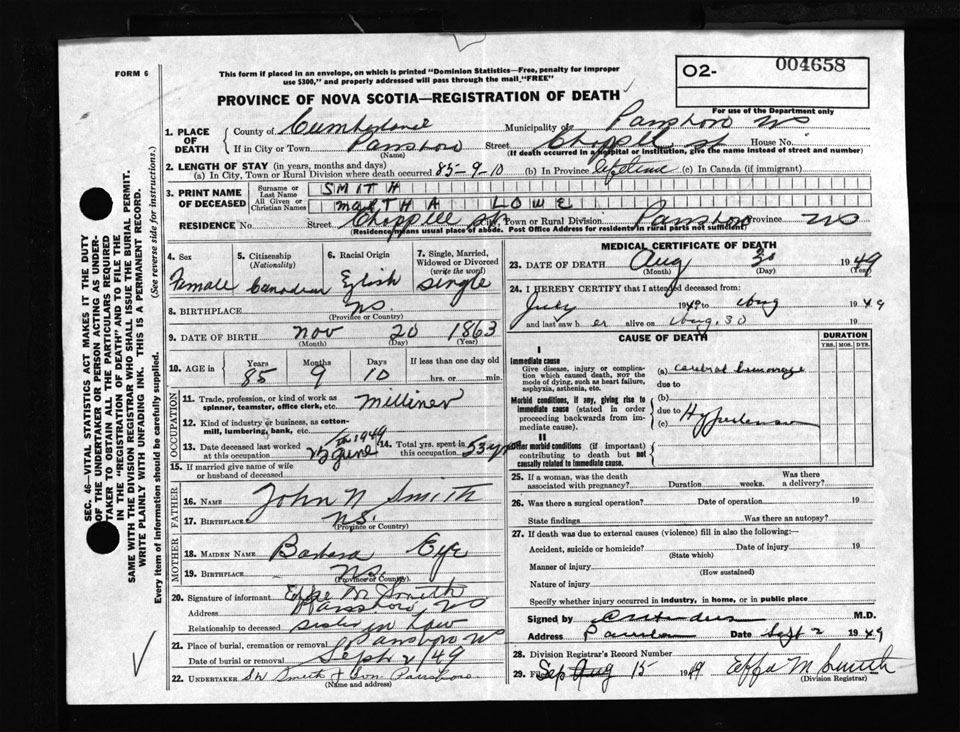 FORM 6
This form if placed in an envelope, on which is printed "Dominion Statistics—Free, penalty for improper
use $300," and properly addressed will pass through the mail "FREE"
O2- 004658
For use of the Department only
PROVINCE OF NOVA SCOTIA—REGISTRATION OF DEATH
1. PLACE OF DEATH
County of Cumberland Municipality of Parrsboro NS
If in City or Town Parrsboro (Name) Street Chapple St House No.
(If death occurred in a hospital or institution, give the name instead of street and number)
2. LENGTH OF STAY (in years, months and days)
(a) In City, Town or Rural Division where death occurred 85-9-10 (b) In Province lifetime (c) In Canada (if immigrant)
3. PRINT NAME OF DECEASED
Surname or Last Name SMITH
All Given or Christian Names MARTHA LOWE
RESIDENCE No. Street Chopplle St. Town or Rural Division Parrsboro Province NS
(Residence means usual place of abode. Post Office Address for residents in rural parts not sufficient)
4. Sex Female
5. Citizenship (Nationality) Canadian
6. Racial Origin Eglish
7. Single, Married, Widowed or Divorced (write the word) single
8. BIRTHPLACE NS
(Province or Country)
9. DATE OF BIRTH Nov 20 1863
(Month) (Day) (Year)
10. AGE in Years 85 Months 9 Days 10 If less than one day old
hrs. or min.
OCCUPATION
11. Trade, profession, or kind of work as
spinner, teamster, office clerk, etc. Milliner
12. Kind of industry or business, as cotton-
mill, lumbering, bank, etc.
13. Date deceased last worked
at this occupation June 1949
14. Total yrs. spent in
this occupation 53 yrs
15. If married give name of wife
or husband of deceased
FATHER
16. NAME John N Smith
17. BIRTHPLACE N.S.
(Province or Country)
MOTHER
18. MAIDEN NAME Barbara
19. BIRTHPLACE NS
(Province or Country)
20. Signature of informant Effie M Smith
Address Parrsboro NS
Relationship to deceased sister in law
21. Place of burial, cremation or removal Parrsboro NS
Date of burial or removal Sept 2/49
22. UNDERTAKER Smith & Son Parrsboro
(Name and address)
MEDICAL CERTIFICATE OF DEATH
23. DATE OF DEATH Aug 30 1949
(Month) (Day) (Year)
24. I HEREBY CERTIFY that I attended deceased from:
July 1949 to Aug 1949
and last saw her alive on Aug. 30 19
CAUSE OF DEATH
DURATION
YRS. MOS. DYS.
I
Immediate cause
Give disease, injury or complica-
tion which caused death, NOT the
mode of dying, such as heart failure,
asphyxia, asthenia, etc.
(a) cerebral hemorrage
due to
Morbid conditions, if any, giving rise to
immediate cause (stated in order
proceeding backwards from im-
mediate cause).
(b)
due to
(c) Hypertension
II
Other morbid conditions (if important)
contributing to death but not
causally related to immediate cause.
25. If a woman, was the death
associated with pregnancy? Duration weeks. Was there
a delivery?
26. Was there a surgical operation? Date of operation 19
State findings Was there an autopsy?
27. If death was due to external causes (violence) fill in also the following:—
Accident, suicide or homicide? Date of injury 19
(State which)
Manner of injury
(How sustained)
Nature of injury
Specify whether injury occurred in industry, in home, or in public place
Signed by M.D.
Address Date Sept 2 1949
28. Division Registrar's Record Number
29. Filed Sep Aug 15 1949 Effa M Smith
(Division Registrar)
SEC. 46—VITAL STATISTICS ACT MAKES IT THE DUTY
OF THE UNDERTAKER OR PERSON ACTING AS UNDER-
TAKER TO OBTAIN ALL THE PARTICULARS REQUIRED
IN THE "REGISTRATION OF DEATH" AND TO FILE THE
SAME WITH THE DIVISION REGISTRAR WHO SHALL ISSUE THE BURIAL PERMIT.
WRITE PLAINLY WITH UNFADING INK. THIS IS A PERMANENT RECORD.
Every item of information should be carefully supplied. (See reverse side for instructions.)